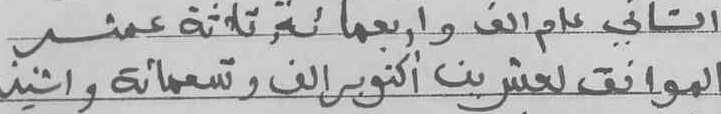 الثاني عام الف واربعمائة وثلاثة عشر
الموافق لعشرين أكتوبر الف وتسعمائة واثنين